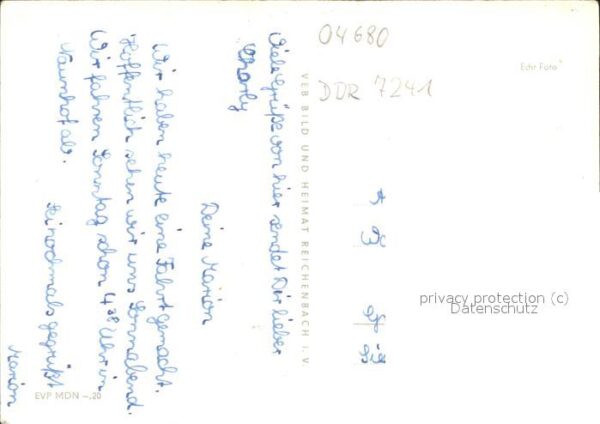 04680
DDR 7241
Echt Foto
Viele Grüße von hier sendet Dir lieber
Charly
Deine Marion
Wir haben heute eine Fahrt gemacht.
Hoffentlich sehen wir uns Sonnabend.
Wir fahren Sonntag schon 4 38 Uhr in
Naunhof ab.
Sei nochmals gegrüßt
Marion
VEB BILD UND HEIMAT REICHENBACH I. V
EVP MDN –,20
privacy protection (c)
Datenschutz